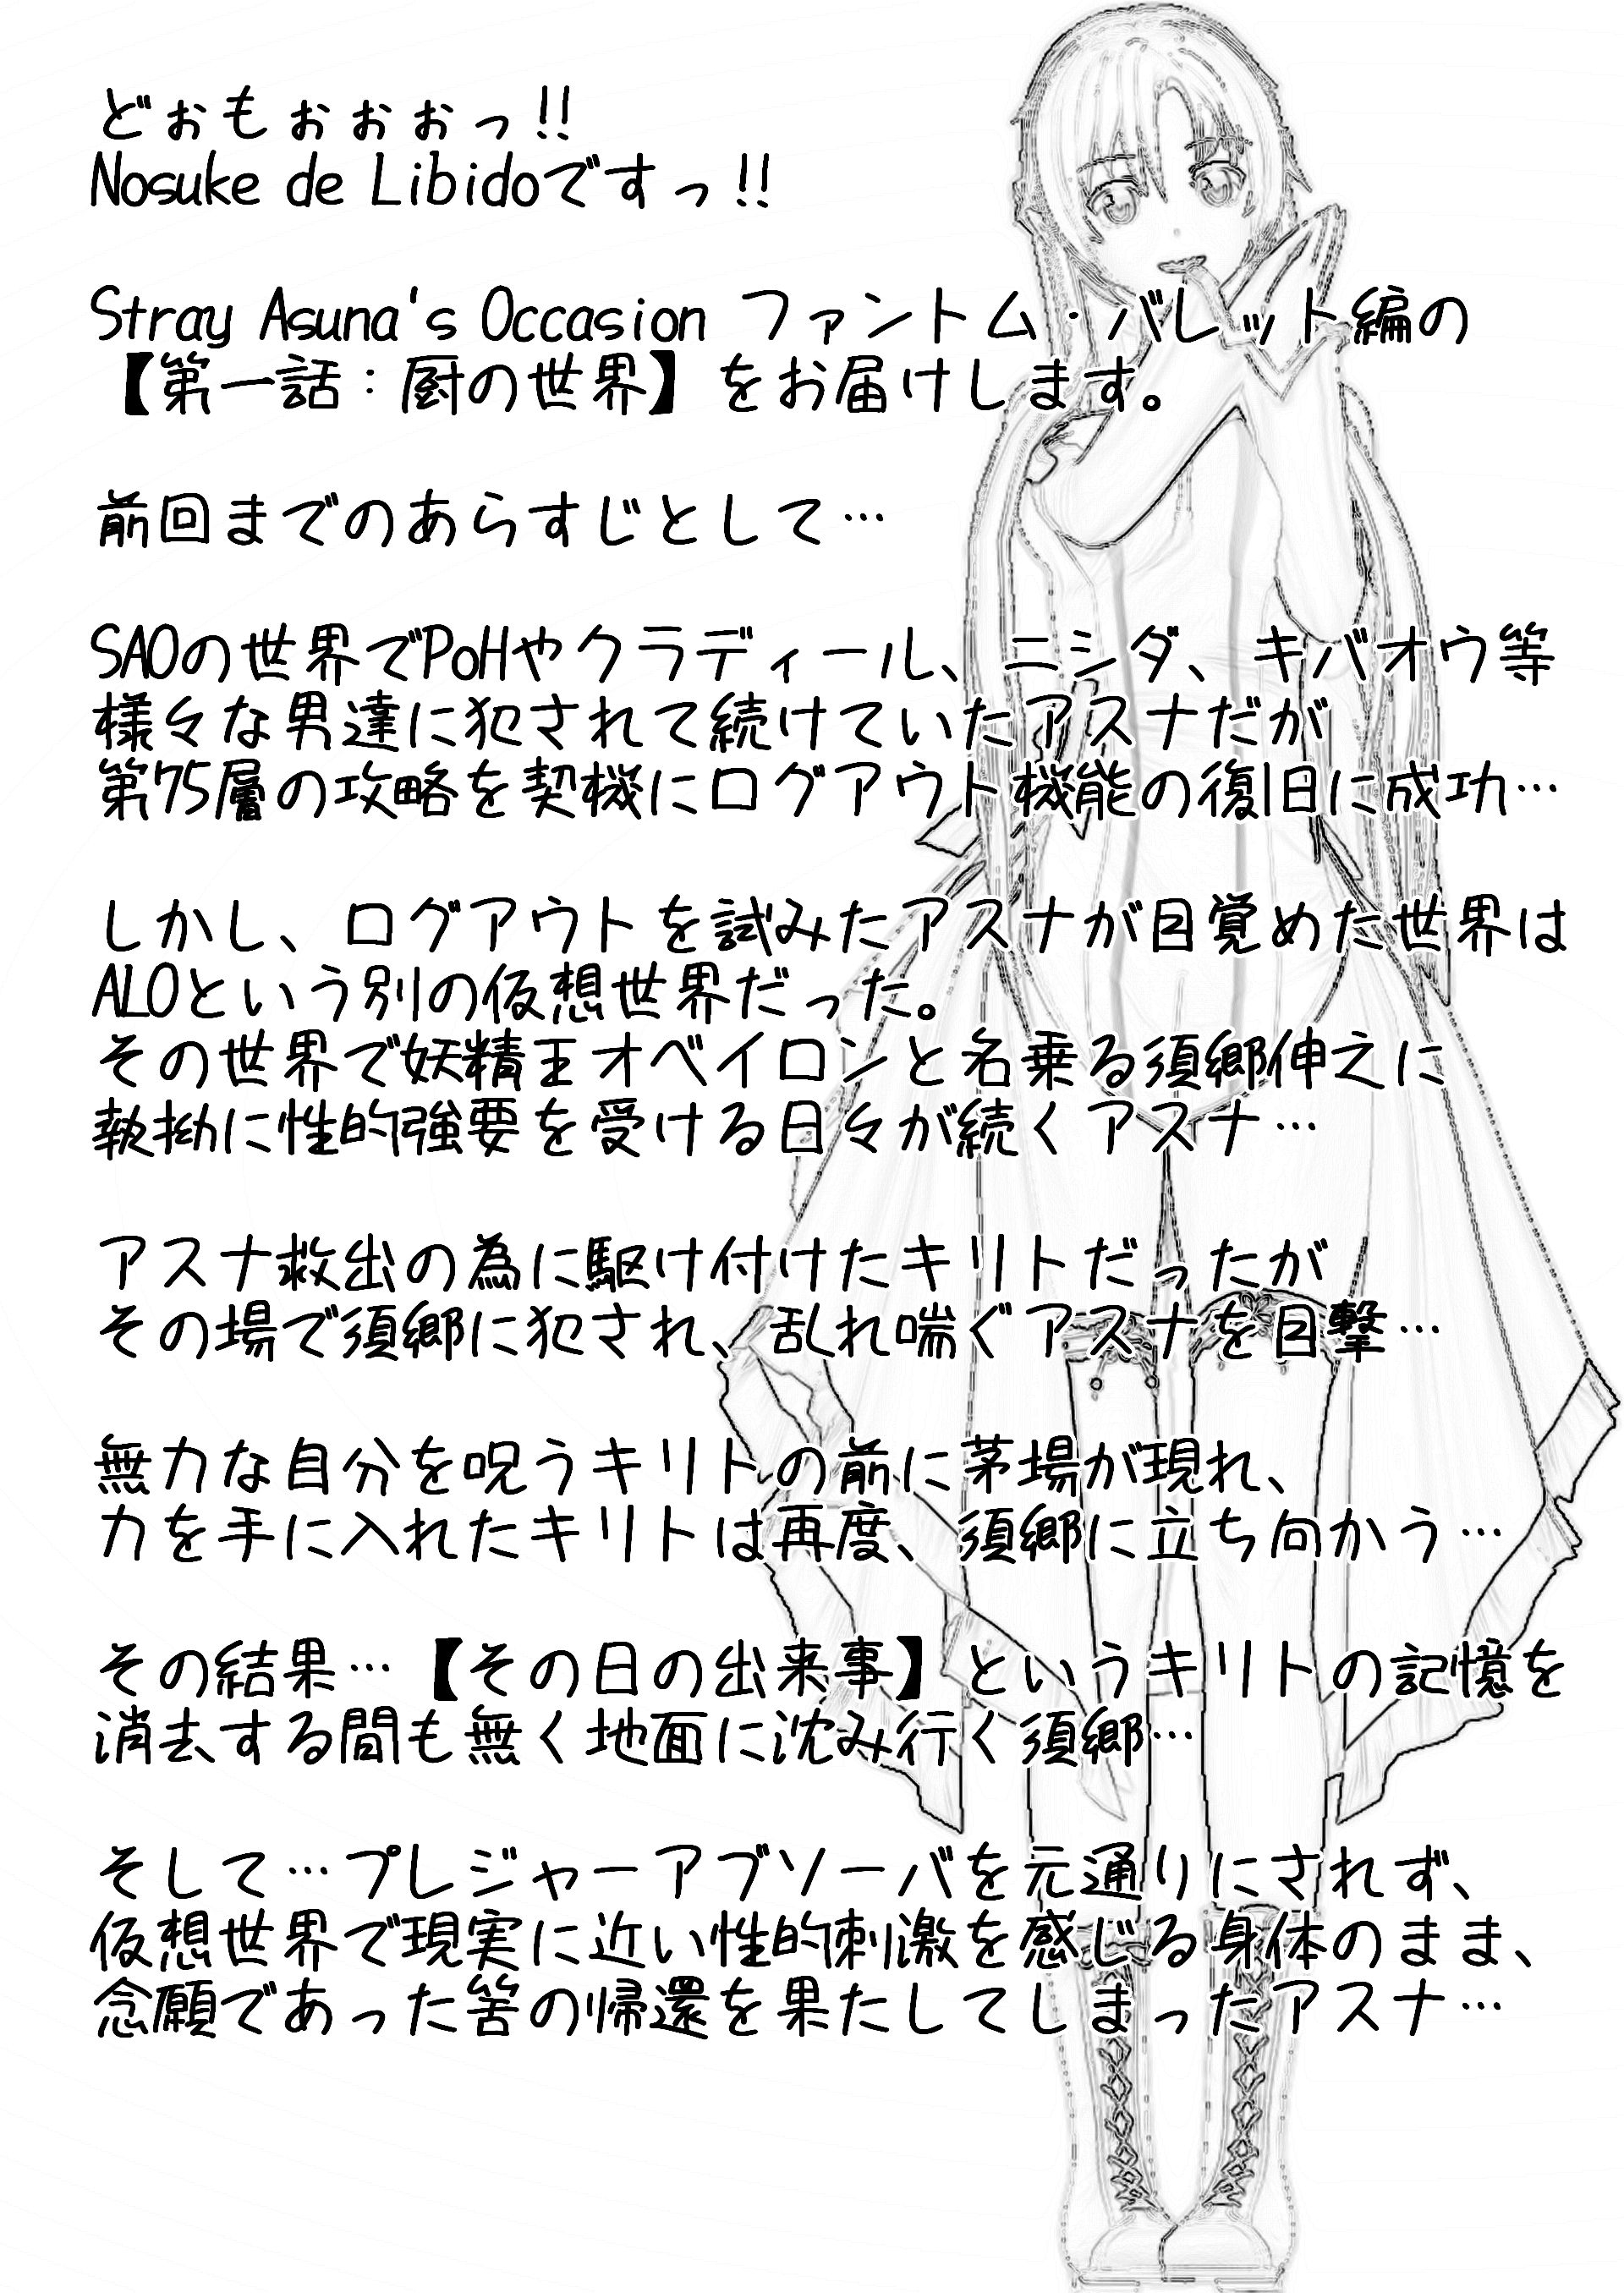 どぉもぉぉぉっ!!
Nosuke de Libidoですっ!!
Stray Asuna's Occasion ファントム・バレット編の
【第一話：厨の世界】をお届けします。
前回までのあらすじとして…
SAOの世界でPoHやクラディール、ニシダ、キバオウ等
様々な男達に犯されて続けていたアスナだが
第75層の攻略を契機にログアウト機能の復旧に成功…
しかし、ログアウトを試みたアスナが目覚めた世界は
ALOという別の仮想世界だった。
その世界で妖精王オベイロンと名乗る須郷伸之に
執拗に性的強要を受ける日々が続くアスナ…
アスナ救出の為に駆け付けたキリトだったが
その場で須郷に犯され、乱れ喘ぐアスナを目撃…
無力な自分を呪うキリトの前に茅場が現れ、
力を手に入れたキリトは再度、須郷に立ち向かう…
その結果…【その日の出来事】というキリトの記憶を
消去する間も無く地面に沈み行く須郷…
そして…プレジャーアブソーバを元通りにされず、
仮想世界で現実に近い性的刺激を感じる身体のまま、
念願であった筈の帰還を果たしてしまったアスナ…